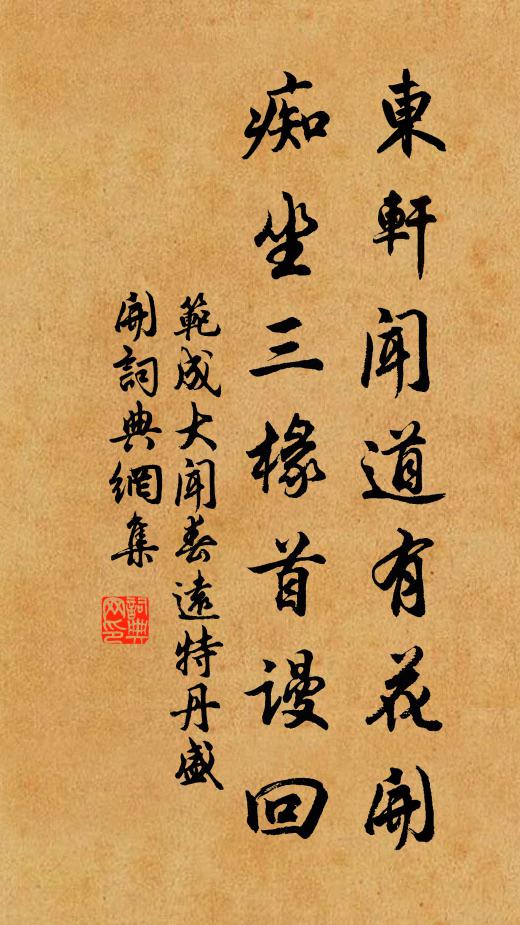 東軒聞道有花開
痴坐三椽首謾回
範成大聞春遠特丹盛
開詞典網集
詞典
网印